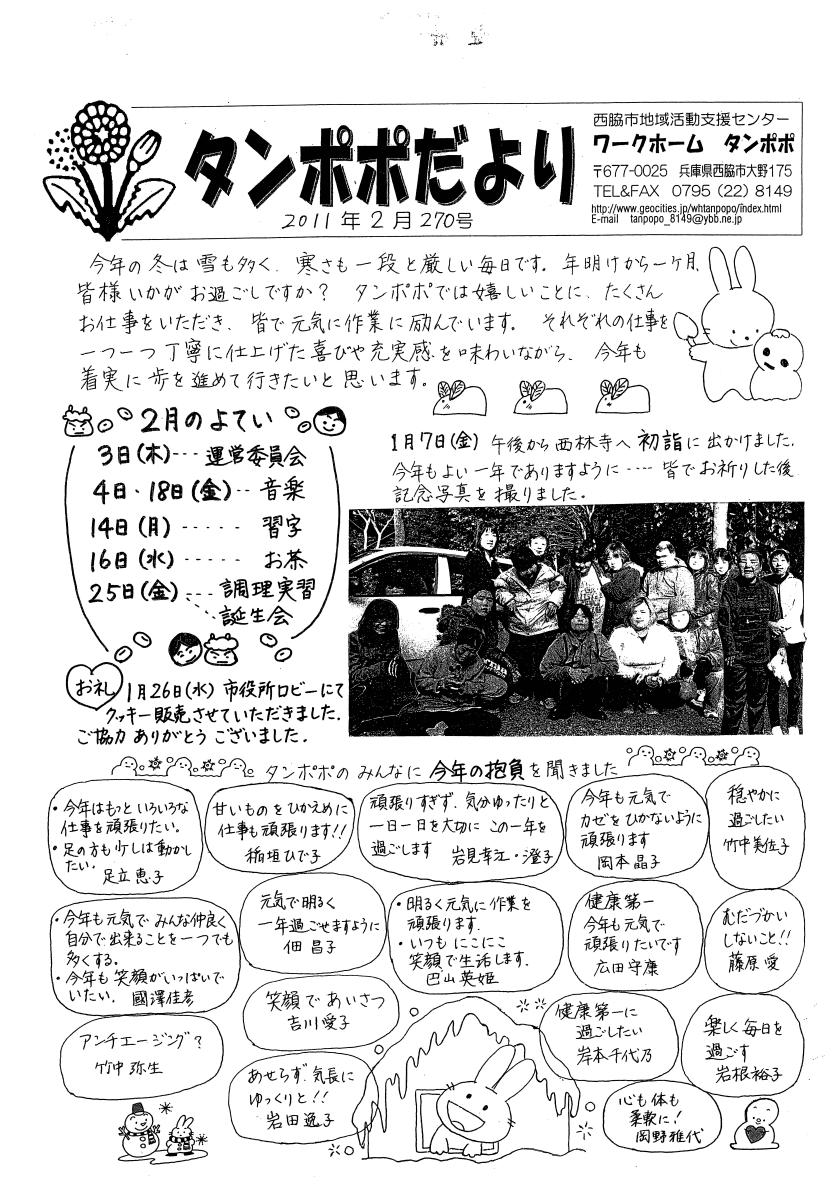 タンポポだより
2011年2月270号
西脇市地域活動支援センター
ワークホーム タンポポ
〒677-0025 兵庫県西脇市大野175
TEL&FAX 0795 (22) 8149
http://www.geocities.jp/whtanpopo/index.html
E-mail tanpopo_8149@ybb.ne.jp
今年の冬は雪も多く、寒さも一段と厳しい毎日です。年明けから一ケ月、
皆様いかがお過ごしですか? タンポポでは嬉しいことに、たくさん
お仕事をいただき、皆で元気に作業に励んでいます。それぞれの仕事を
一つ一つ丁寧に仕上げた喜びや充実感を味わいながら、今年も
着実に歩を進めて行きたいと思います。
2月のよてい
3日(木)---運営委員会
4日・18日(金)--音楽
14日(月)-----習字
16日(水)-----お茶
25日(金)---調理実習
誕生会
1月7日(金) 午後から西林寺へ初詣に出かけました。
今年もよい一年でありますように----皆でお祈りした後
記念写真を撮りました。
お礼
1月26日(水)市役所ロビーにて
クッキー販売させていただきました。
ご協力ありがとうございました。
タンポポのみんなに今年の抱負を聞きました
・今年はもっといろいろな
仕事を頑張りたい。
・足の方も少しは動かし
たい。 足立恵子
甘いものをひかえめに
仕事も頑張ります!!
稲垣ひで子
頑張りすぎず、気分ゆったりと
一日一日を大切にこの一年を
過ごします 岩見幸江・澄子
今年も元気で
カゼをひかないように
頑張ります
岡本晶子
穏やかに
過ごしたい
竹中美佐子
・今年も元気でみんな仲良く
自分で出来ることを一つでも
多くする。
・今年も笑顔がいっぱいで
いたい。 國澤佳彦
元気で明るく
一年過ごせますように
佃 昌子
・明るく元気に作業を
頑張ります。
・いつもにこにこ
笑顔で生活します。
巴山英姫
健康第一
今年も元気で
頑張りたいです
広田守康
むだづかい
しないこと!!
藤原 愛
アンチエージング?
竹中弥生
笑顔であいさつ
吉川愛子
あせらず、気長に
ゆっくりと!!
岩田逸子
健康第一に
過ごしたい
岸本千代乃
楽しく毎日を
過ごす
岩根裕子
心も体も
柔軟に!
岡野雅代